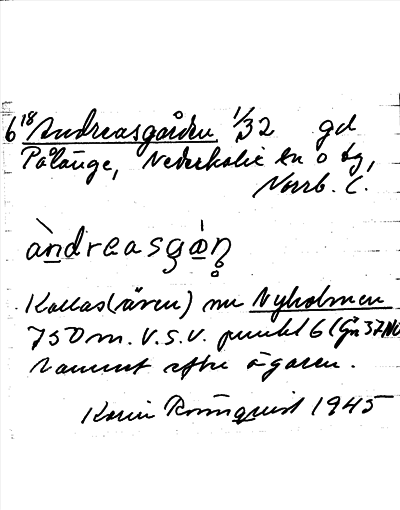 6¹⁸ Andreasgården 1/32 gd
Pålänge, Nederkalix sn o tg,
Norrb. l.
àndreasgàṇ
Kallas (även) nu Nyholmen
750 m. V.S.V. punkt 6 (
Namnet efter ägaren.
Karin Rönnquist 1945